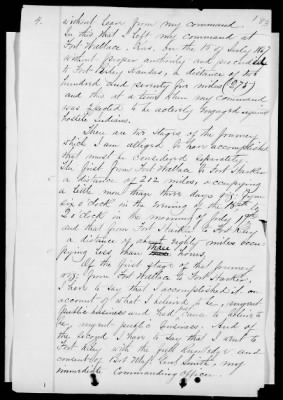 4.
without leave from my command
In this that I left my command at
Fort Wallace, Kas. on the 15th of July 1867
without proper authority and proceeded
to Fort Riley Kansas, a distance of two
hundred and seventy five miles (275)
and this at a time when my command
was expected to be actively engaged against
hostile Indians.
There are two stages of the journey
which I am alleged to have accomplished
that must be considered separately.
The first from Fort Wallace to Fort Harker
a distance of miles, occupying
a little more than three days viz: from
six o'clock in the evening of the 15th to
2 o'clock in the morning of July 19th
and that from Fort Harker to Fort Riley
a distance of eighty miles occu-
pying less than hours.
Of the first stage of that journey
viz: from Fort Wallace to Fort Harker,
I have to say that I accomplished it on
account of what I believed to be, urgent
public business and had to
be, urgent public business. And of
the second I have to say that I went to
Fort Riley with the full knowledge and
consent of Bvt Maj. Genl Smith, my
immediate Commanding Officer.